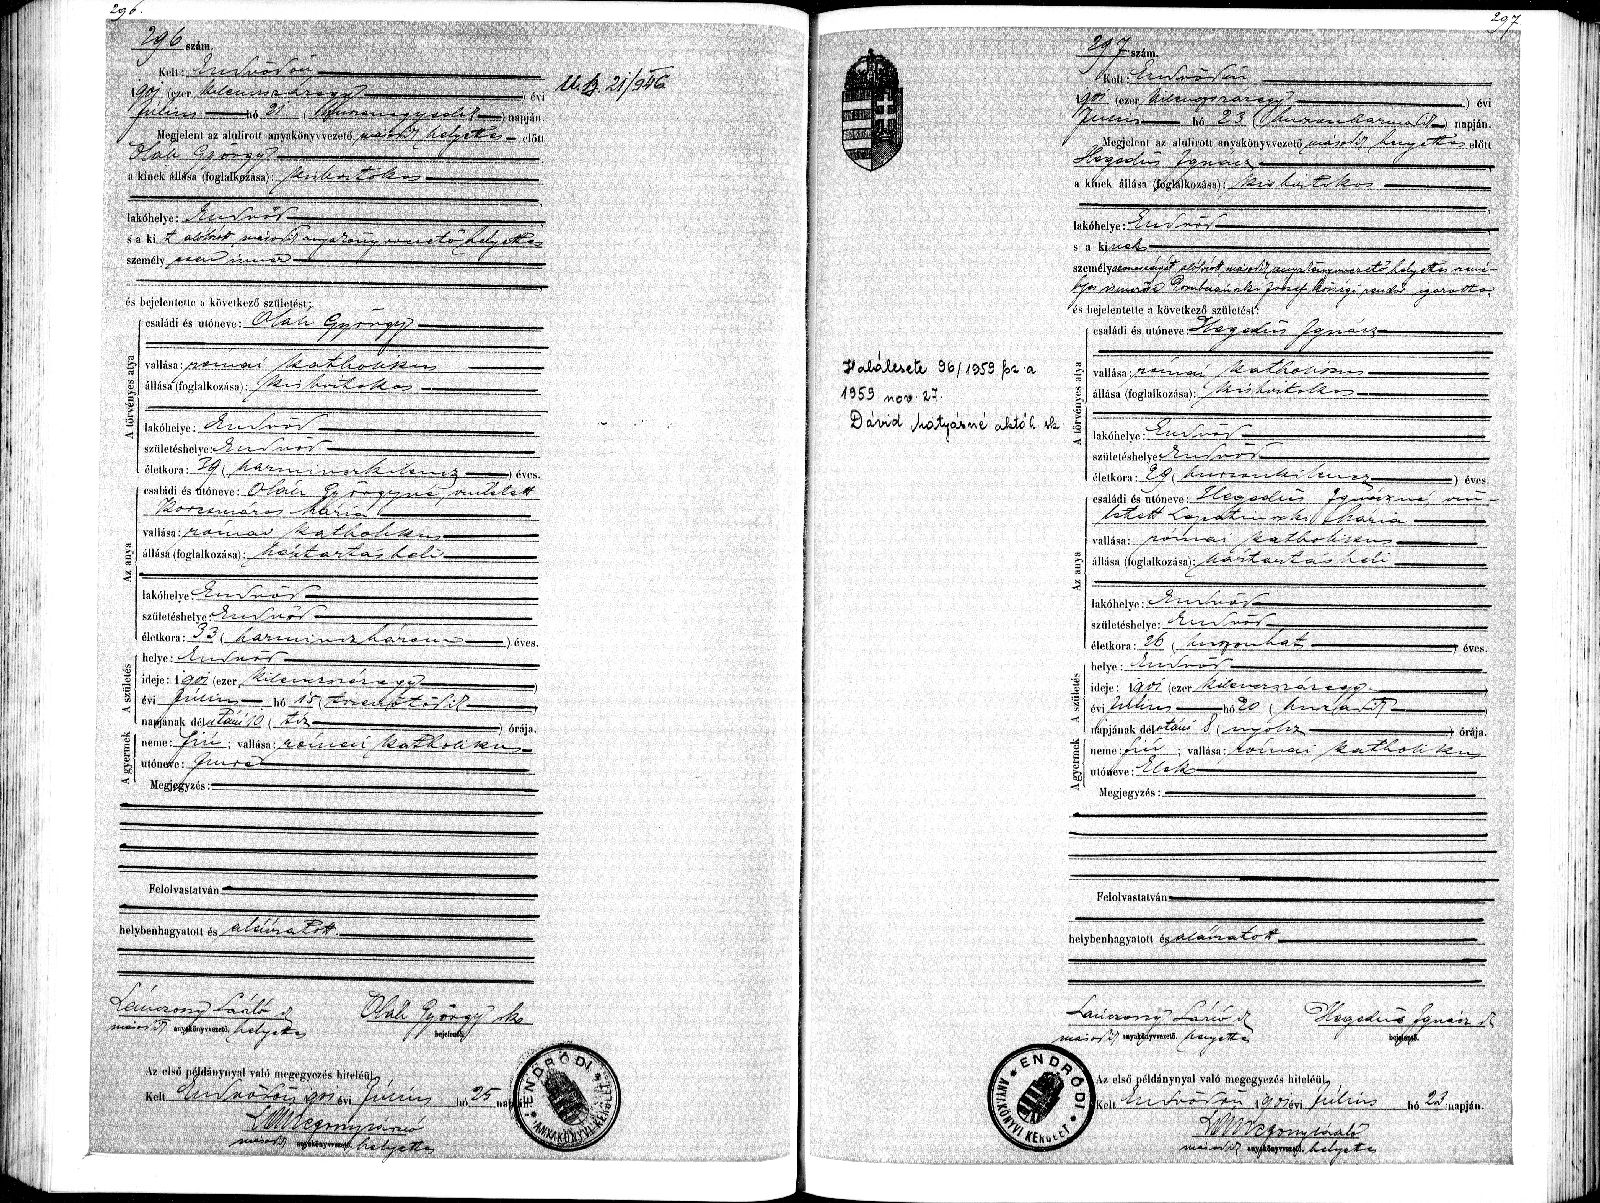 296.
296 szám.
Kelt: Endrődön
1901 (ezer kilenczszázegy) évi
Július hó 21 ( ) napján
Megjelent az alulirott anyakönyvvezető másod helyettes előtt
Oláh György
a kinek állása (foglalkozása): kisbirtokos
lakóhelye: Endrőd
s a ki t alólirott másod anyakönyvvezető helyettes
személyesen ismer
és bejelentette a következő születést:
A törvényes atya
családi és utóneve: Oláh György
vallása: római katholikus
állása (foglalkozása): kisbirtokos
lakóhelye: Endrőd
születéshelye: Endrőd
életkora: 39 (harminczkilencz) éves.
Az anya
családi és utóneve: Oláh Györgyné, született
Korcsmáros Mária
vallása: római katholikus
állása (foglalkozása): háztartásbeli
lakóhelye: Endrőd
születéshelye: Endrőd
életkora: 33 (harminczhárom) éves.
A születés
helye: Endrőd
ideje: 1901 (ezer kilenczszázegy)
évi Július hó 15 (tizenötödik)
napjának délutáni 10 (tíz) órája.
A gyermek
neme: fiú; vallása: római katholikus
utóneve: Imre
Megjegyzés:
Felolvastatván
helybenhagyatott és aláiratott.
László
Oláh György sk
másod anyakönyvvezető. helyettes
bejelentő.
Az első példánynyal való megegyezés hiteléül
Kelt Endrődön 1901 évi Július hó 25 napján.
másod anyakönyvvezető. helyettes
ENDRŐDI
ANYAKÖNYVI KERÜLET
21/946
297
297 szám.
Kelt Endrődön
1901 (ezer kilenczszázegy) évi
Július hó 23 (huszonharmadik) napján.
Megjelent az alulirott anyakönyvvezető másod helyettes előtt
Hegedüs Ignácz
a kinek állása (foglalkozása): kisbirtokos
lakóhelye: Endrőd
s a kinek
személyazonosságát alólirott másod anyakönyvvezető helyettes
József községi rendőr igazolta
és bejelentette a következő születést:
A törvényes atya
családi és utóneve: Hegedüs Ignácz
vallása: római katholikus
állása (foglalkozása): kisbirtokos
lakóhelye: Endrőd
születéshelye: Endrőd
életkora: 29 (huszonkilencz) éves
Az anya
családi és utóneve: Hegedüs Ignáczné, szü-
letett Lapatinszki Mária
vallása: római katholikus
állása (foglalkozása): háztartásbeli
lakóhelye: Endrőd
születéshelye: Endrőd
életkora: 26 (huszonhat) éves.
A születés
helye: Endrőd
ideje: 1901 (ezer kilenczszázegy)
évi Július hó 20 (huszadik)
napjának délutáni 8 (nyolcz) órája.
A gyermek
neme: fiú; vallása: római katholikus
utóneve: Elek
Megjegyzés:
Felolvastatván
helybenhagyatott és aláiratott
László
Hegedüs Ignácz sk
másod anyakönyvvezető. helyettes
bejelentő.
Az első példánynyal való megegyezés hiteléül
Kelt Endrődön 1901 évi Július hó 23 napján.
másod anyakönyvvezető. helyettes
ENDRŐDI
ANYAKÖNYVI KERÜLET
Halálesete 96/1959 fsz. a
1959 nov. 27.
Dávid Mátyásné aktól sk